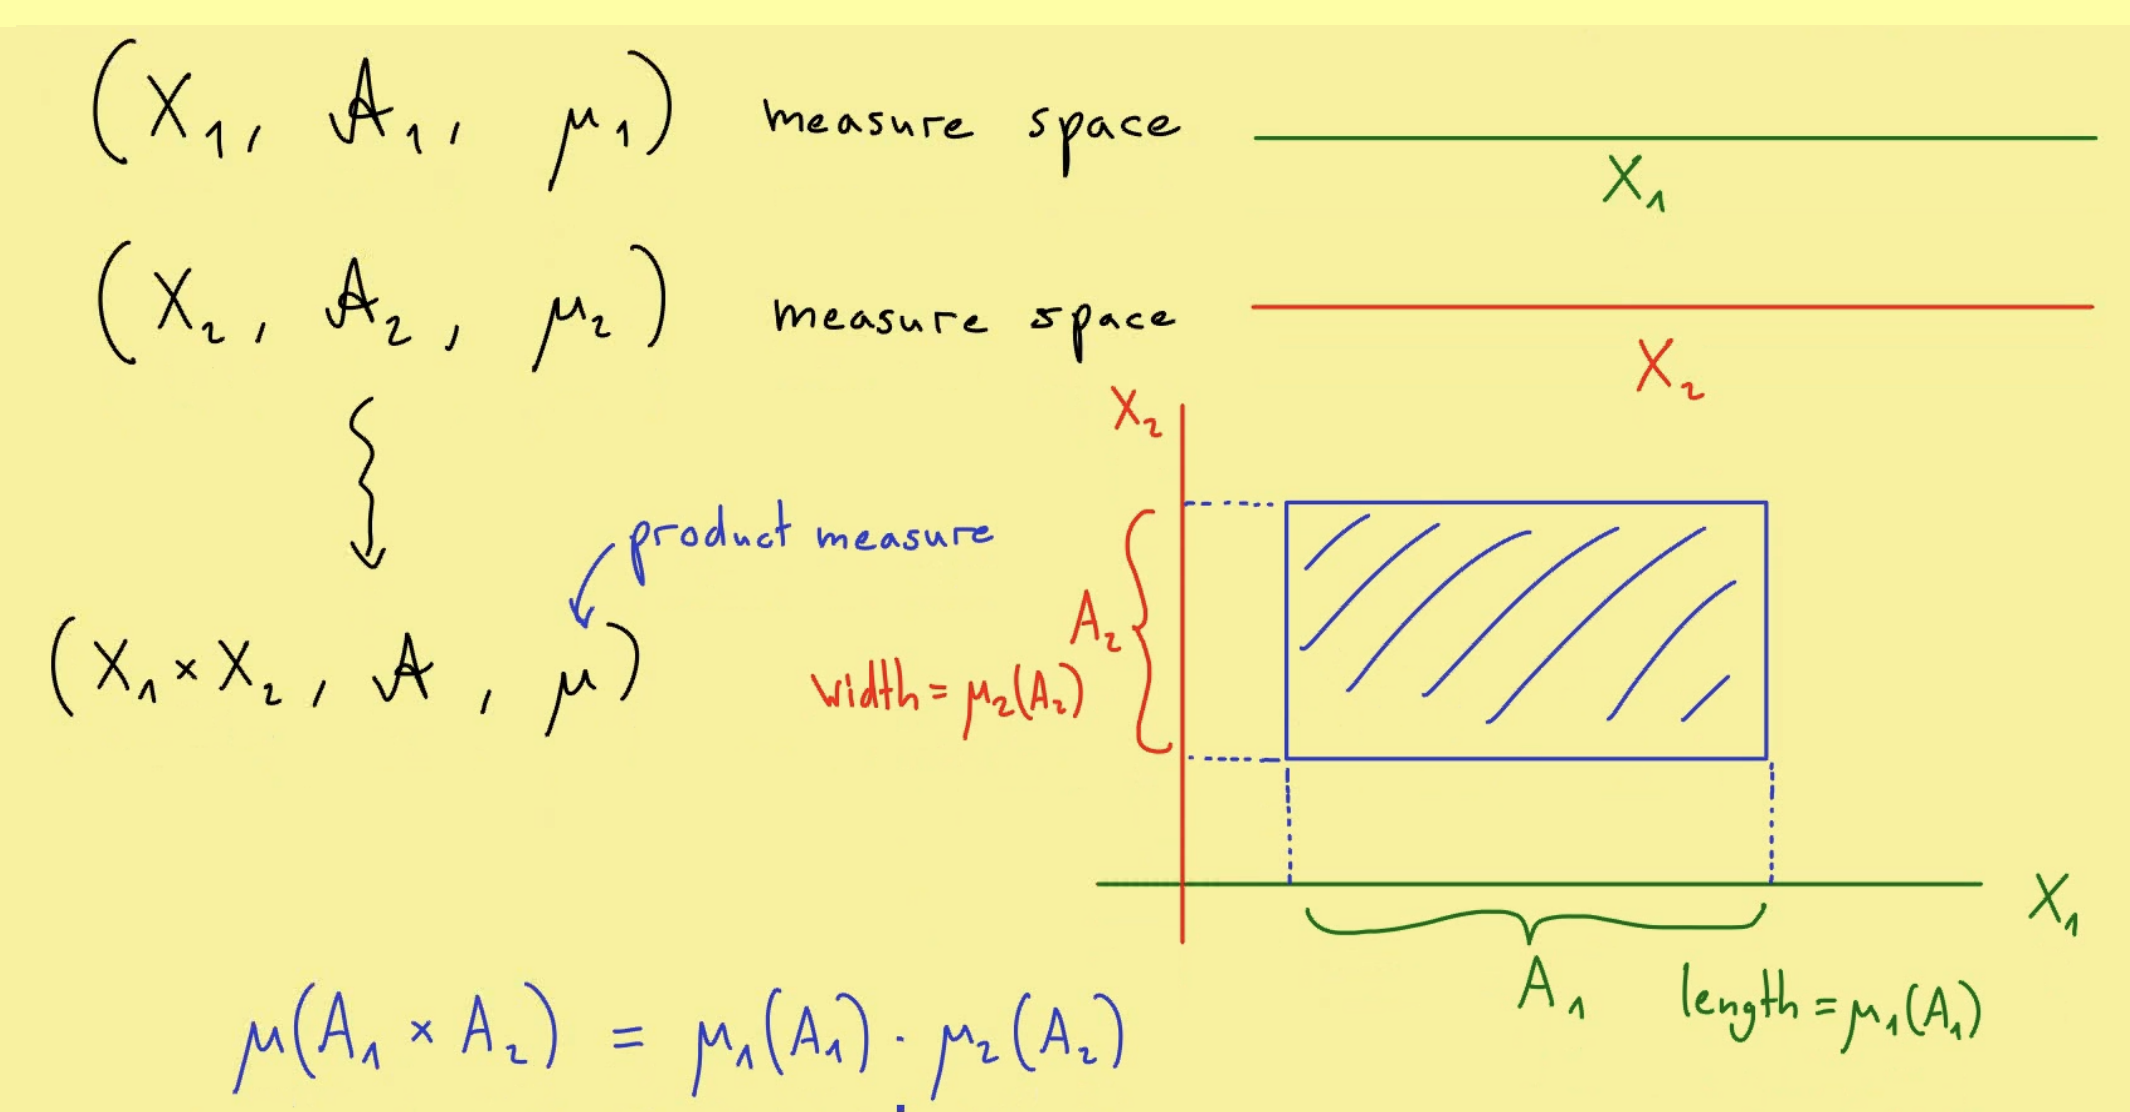 (X₁, 𝒜₁, μ₁) measure space
X₁
(X₂, 𝒜₂, μ₂) measure space
X₂
X₂
product measure
A₂
(X₁ × X₂, 𝒜, μ)
width = μ₂(A₂)
X₁
A₁
length = μ₁(A₁)
μ(A₁ × A₂) = μ₁(A₁) · μ₂(A₂)